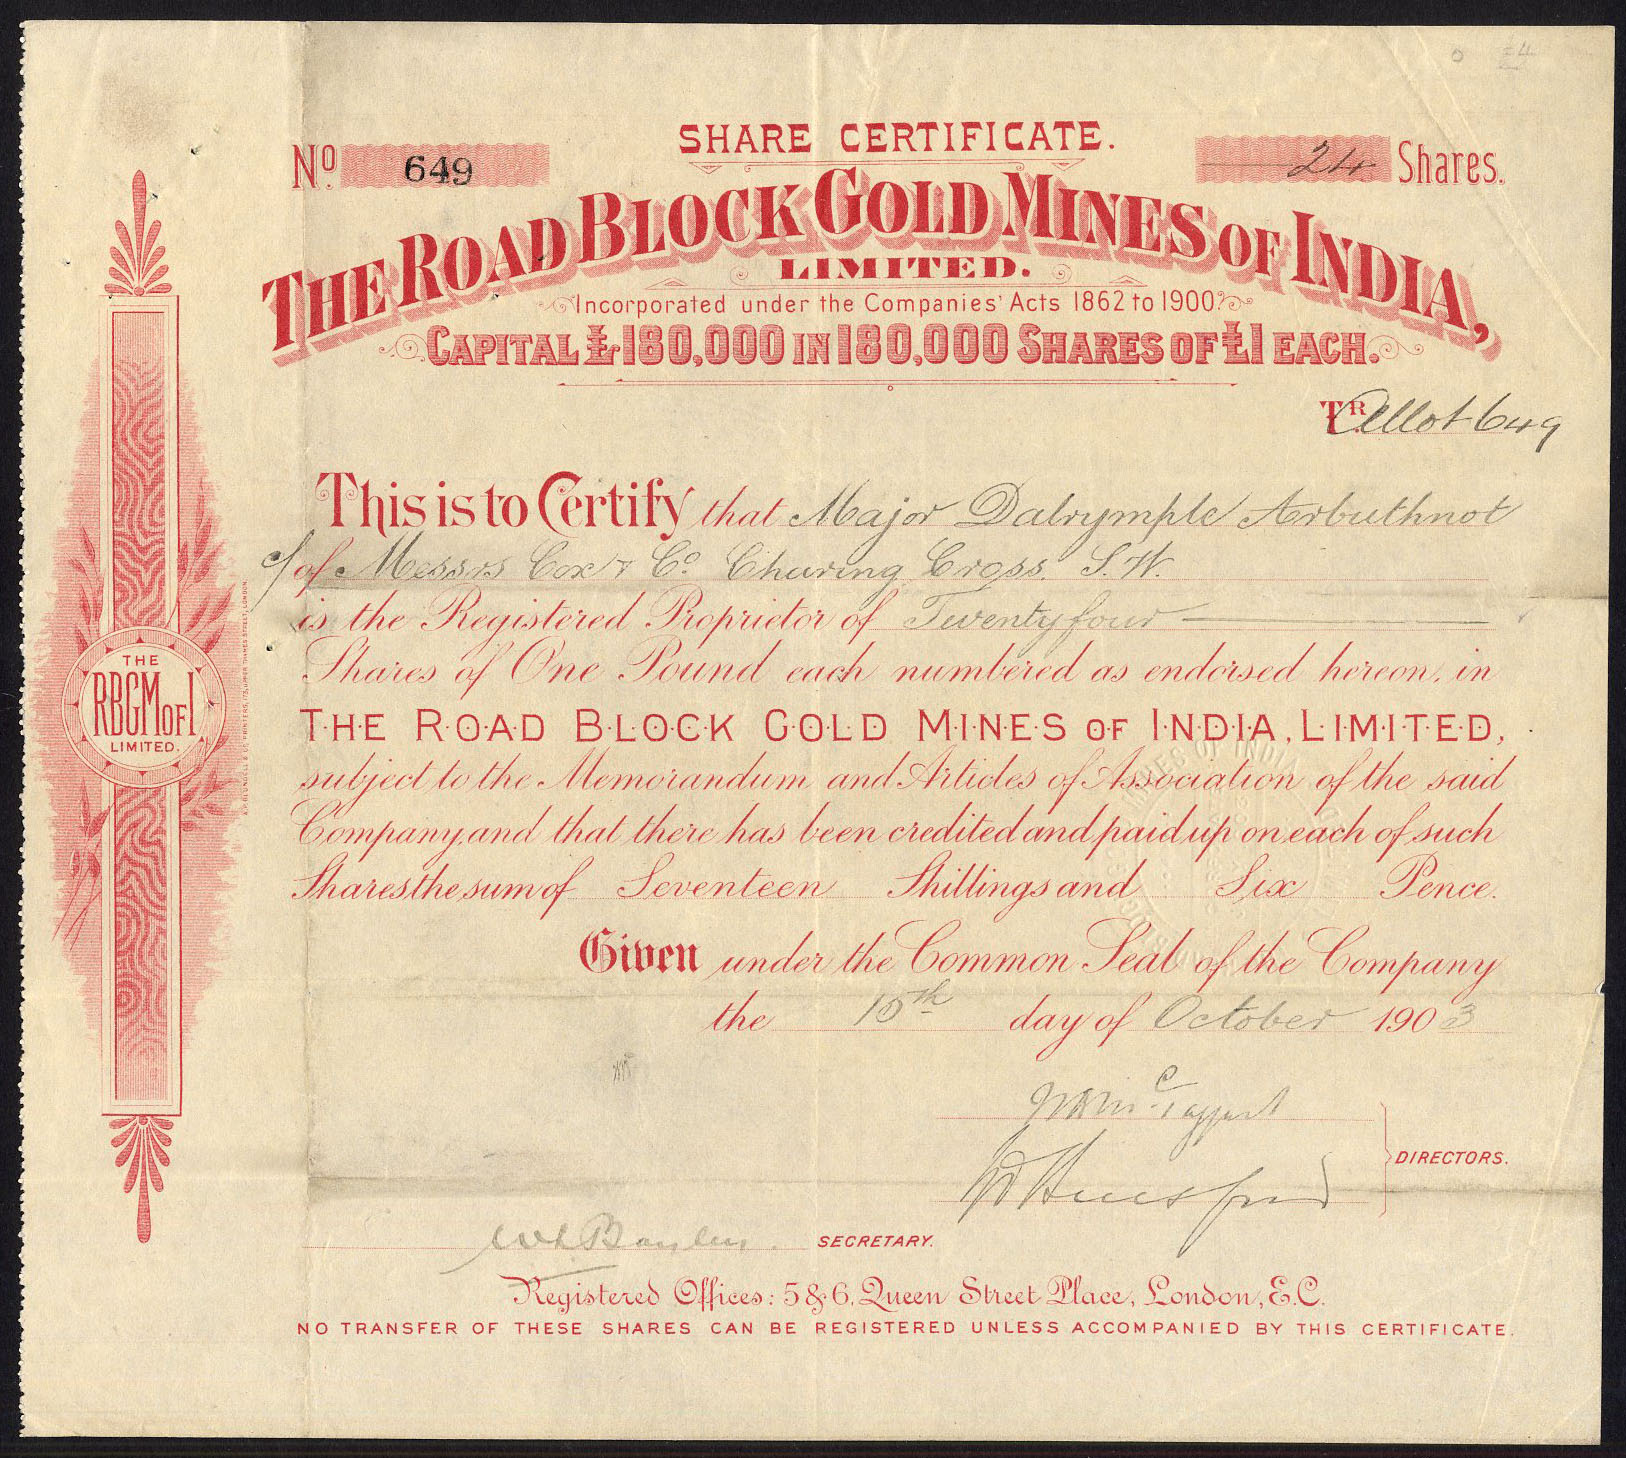 SHARE CERTIFICATE.
No. 649
24 Shares.
THE ROAD BLOCK GOLD MINES OF INDIA,
LIMITED.
Incorporated under the Companies' Acts 1862 to 1900.
CAPITAL £180,000 IN 180,000 SHARES OF £1 EACH.
TR. Allot 649
This is to Certify that Major Dalrymple Arbuthnot
c/ of Messrs Cox & Co. Charing Cross. S.W.
is the Registered Proprietor of Twenty four
Shares of One Pound each numbered as endorsed hereon, in
THE ROAD BLOCK GOLD MINES OF INDIA, LIMITED,
subject to the Memorandum and Articles of Association of the said
Company, and that there has been credited and paid up on each of such
Shares the sum of Seventeen Shillings and Six Pence.
Given under the Common Seal of the Company
the 15th day of October 1903
DIRECTORS.
SECRETARY.
Registered Offices: 5 & 6, Queen Street Place, London, E.C.
NO TRANSFER OF THESE SHARES CAN BE REGISTERED UNLESS ACCOMPANIED BY THIS CERTIFICATE.
THE
RBGM OF I
LIMITED.